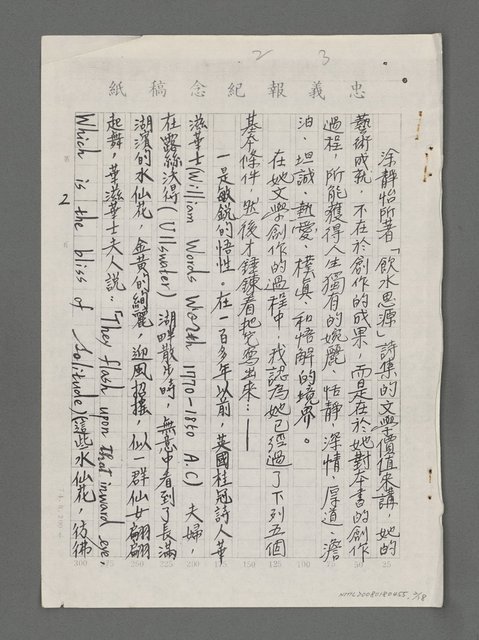 2 3
忠義報紀念稿紙
涂靜怡所著「飲水思源」詩集的文學價值來講，她的
藝術成就，不在於創作的成果，而是在於她對本書的創作
過程，所能獲得人生獨有的婉麗、恬靜、深情、厚道、澹
泊、坦誠、熱愛、樸真、和悟解的境界。
在她文學創作的過程中，我認為她已經過了下列五個
基本條件，然後才錘鍊着把它寫出來：——
一是敏銳的悟性。在一百多年以前，英國桂冠詩人華
滋華士(William Words Worth 1770-1850 A.C) 夫婦，
在露絲決得(Ullswater) 湖畔散步時，無意中看到了長滿
湖濱的水仙花，金黃的絢麗，迎風招搖，似一群仙女翩翩
起舞，華滋華士夫人說：「They flash upon that inward eye
Which is the bliss of solitude)這些水仙花，彷彿
2
25
50
75
100
125
150
175
200
225
250
275
300
NMTL20080180455. 2/18